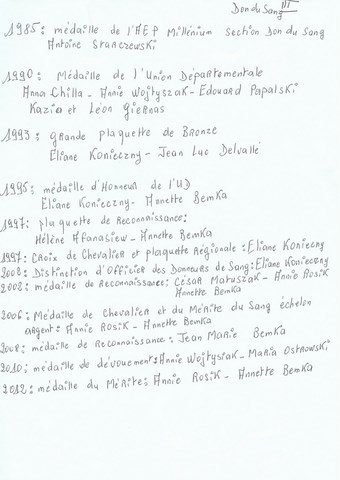 Don du Sang III
1985: médaille de l'AEP Millénium section Don du Sang
Antoine Starczewski
1990: Médaille de l'Union Départementale
Anna Chilla - Annie Wojtyszak - Edouard Papalski
Kazia et Léon Giernas
1993: grande plaquette de Bronze
Eliane Konieczny - Jean Luc Delvallé
1995: médaille d'Honneur de l'UD
Eliane Konieczny - Annette Bemka
1997: plaquette de Reconnaissance:
Hélène Afanasiew - Annette Bemka
1997: Croix de Chevalier et plaquette Régionale: Eliane Koniecny
2002: Distinction d'Officier des Donneurs de Sang: Eliane Konieczny
2002: médaille de Reconnaissance: César Matuszak - Annie Rosik
Annette Bemka
2006: Médaille de Chevalier et du Mérite du Sang échelon
argent: Annie Rosik - Annette Bemka
2008: médaille de Reconnaissance: Jean Marie Bemka
2010: médaille de dévouement: Annie Wojtysiak - Maria Ostrowski
2012: médaille du Mérite: Annie Rosik - Annette Bemka